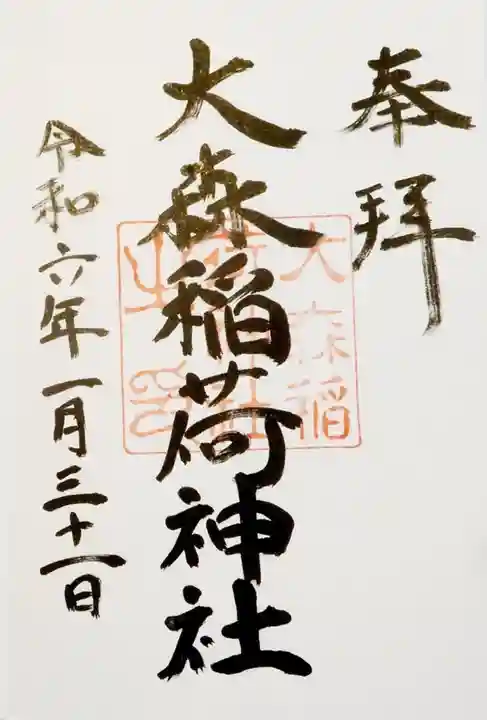 奉拝
大森稲荷神社
大森稲
荷神社
之印
令和六年一月三十一日